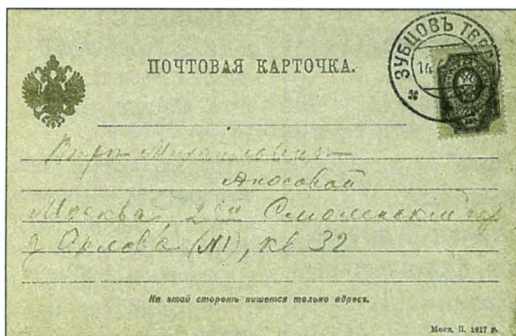 ПОЧТОВАЯ КАРТОЧКА.
ЗУБЦОВЪ ТВЕР
14
Михайловнѣ
Аносовой
Москва, 2ой Смоленский пер
д Орлова (№1), кв 32
На этой сторонѣ пишется только адресъ.
Моск. П. 1917 г.